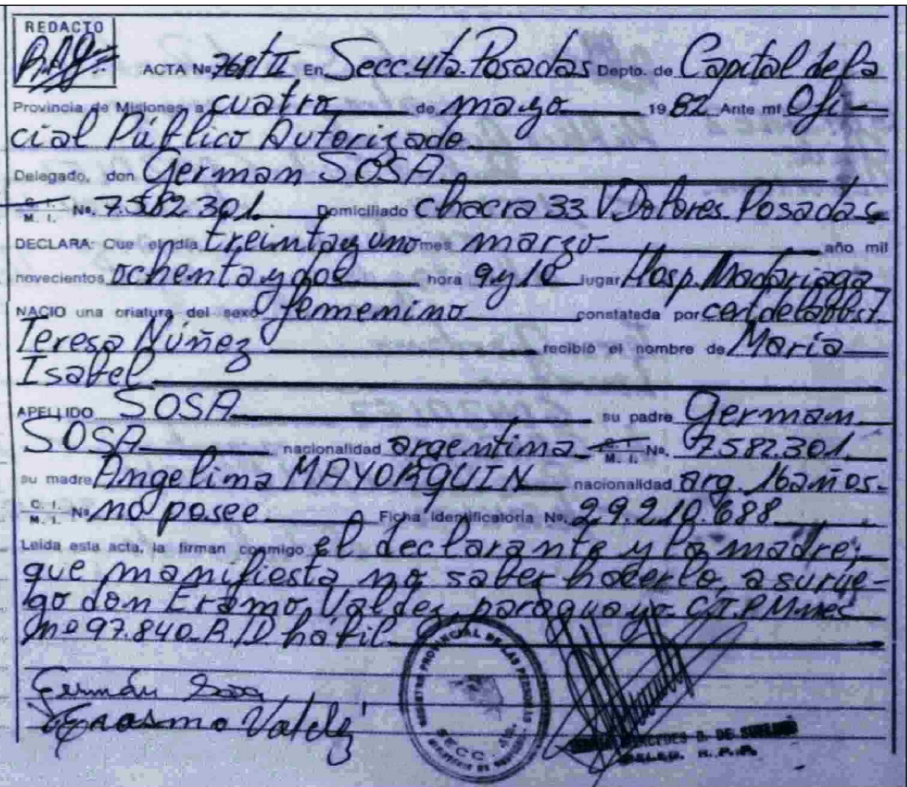 REDACTO
ACTA No 768 t II En Secc. 4ta. Posadas Depto. de Capital de la
Provincia de Misiones, a cuatro de mayo 19 82 Ante mí Ofi-
cial Público Autorizado
Delegado, don German SOSA
C. I. M. I. No. 7.582.301 Domiciliado chacra 33 V. Dolores Posadas
DECLARA: Que el día treinta y uno mes marzo año mil
novecientos ochenta y dos hora 9 y 10 lugar Hosp. Madariaga
NACIO una criatura del sexo femenino constatada por cert. de la obst.
Teresa Núñez recibió el nombre de María
Isabel
APELLIDO SOSA su padre German
SOSA nacionalidad argentina C. I. M. I. No. 7.582.301
su madre Angelina MAYORQUIN nacionalidad arg. 16 años.
C. I. M. I. No no posee Ficha identificatoria No. 29.210.688
Leída esta acta, la firman conmigo el declarante y la madre,
que manifiesta no saber hacerlo, a su rue-
go don Eramo Valdez, paraguayo C.I.P.Mnes
no 97.840 hábil
Germán Sosa
Erasmo Valdéz
REGISTRO PROVINCIAL DE LAS PERSONAS
SECC. 4ta.
MERCEDES D. DE
DELEG. R. P. P.